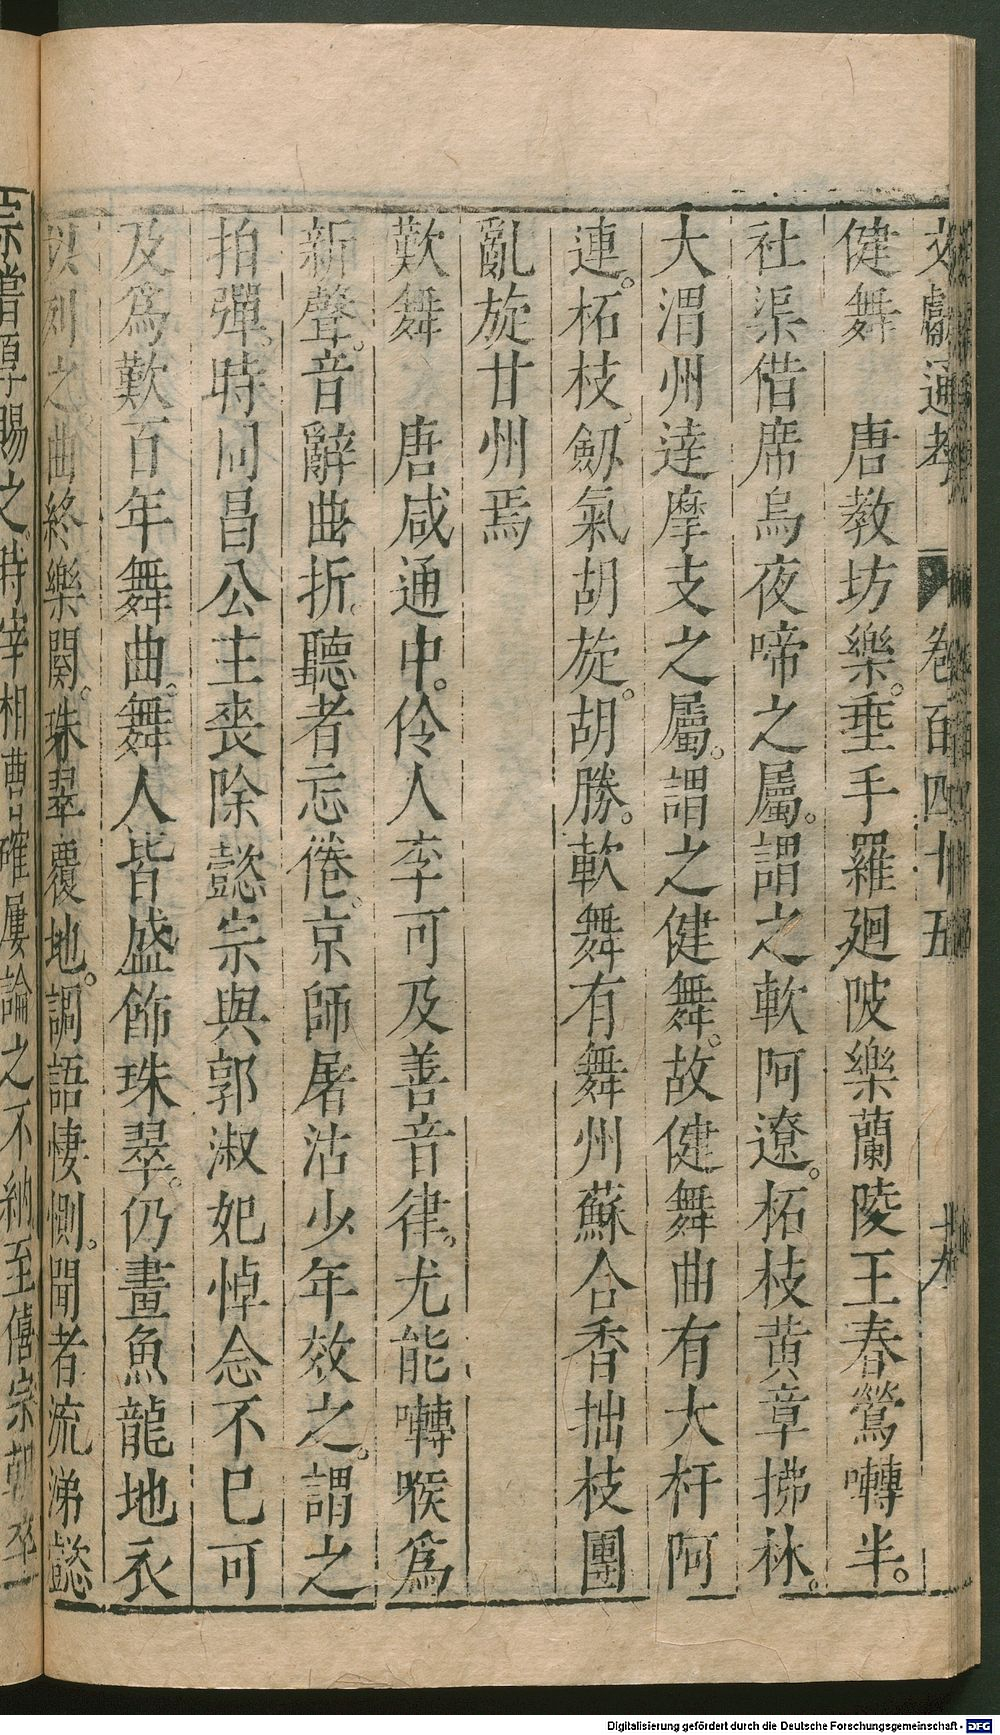 文獻通考 卷百四十五 十九
健舞 唐教坊樂。垂手羅廻陂樂蘭陵王春鶯囀半。
社渠借席烏夜啼之屬。謂之軟阿遼。柘枝黃章拂林。
大渭州達摩支之屬。謂之健舞。故健舞曲有大杆阿
連。柘枝。劔氣胡旋。胡勝。軟舞有舞州蘇合香拙枝團
亂旋甘州焉
歎舞 唐咸通中。伶人李可及善音律。尤能囀喉爲
新聲。音辭曲折。聽者忘倦。京師屠沽少年效之。謂之
拍彈。時同昌公主喪除懿宗與郭淑妃悼念不已可
及爲歎百年舞曲。舞人皆盛飾珠翠。仍畫魚龍地衣
以列之曲終樂闋。珠翠覆地。調語悽惻。聞者流涕懿
宗嘗厚賜之。時宰相曹確屢論之不納至僖宗朝卒
Digitalisierung gefördert durch die Deutsche Forschungsgemeinschaft - DFG